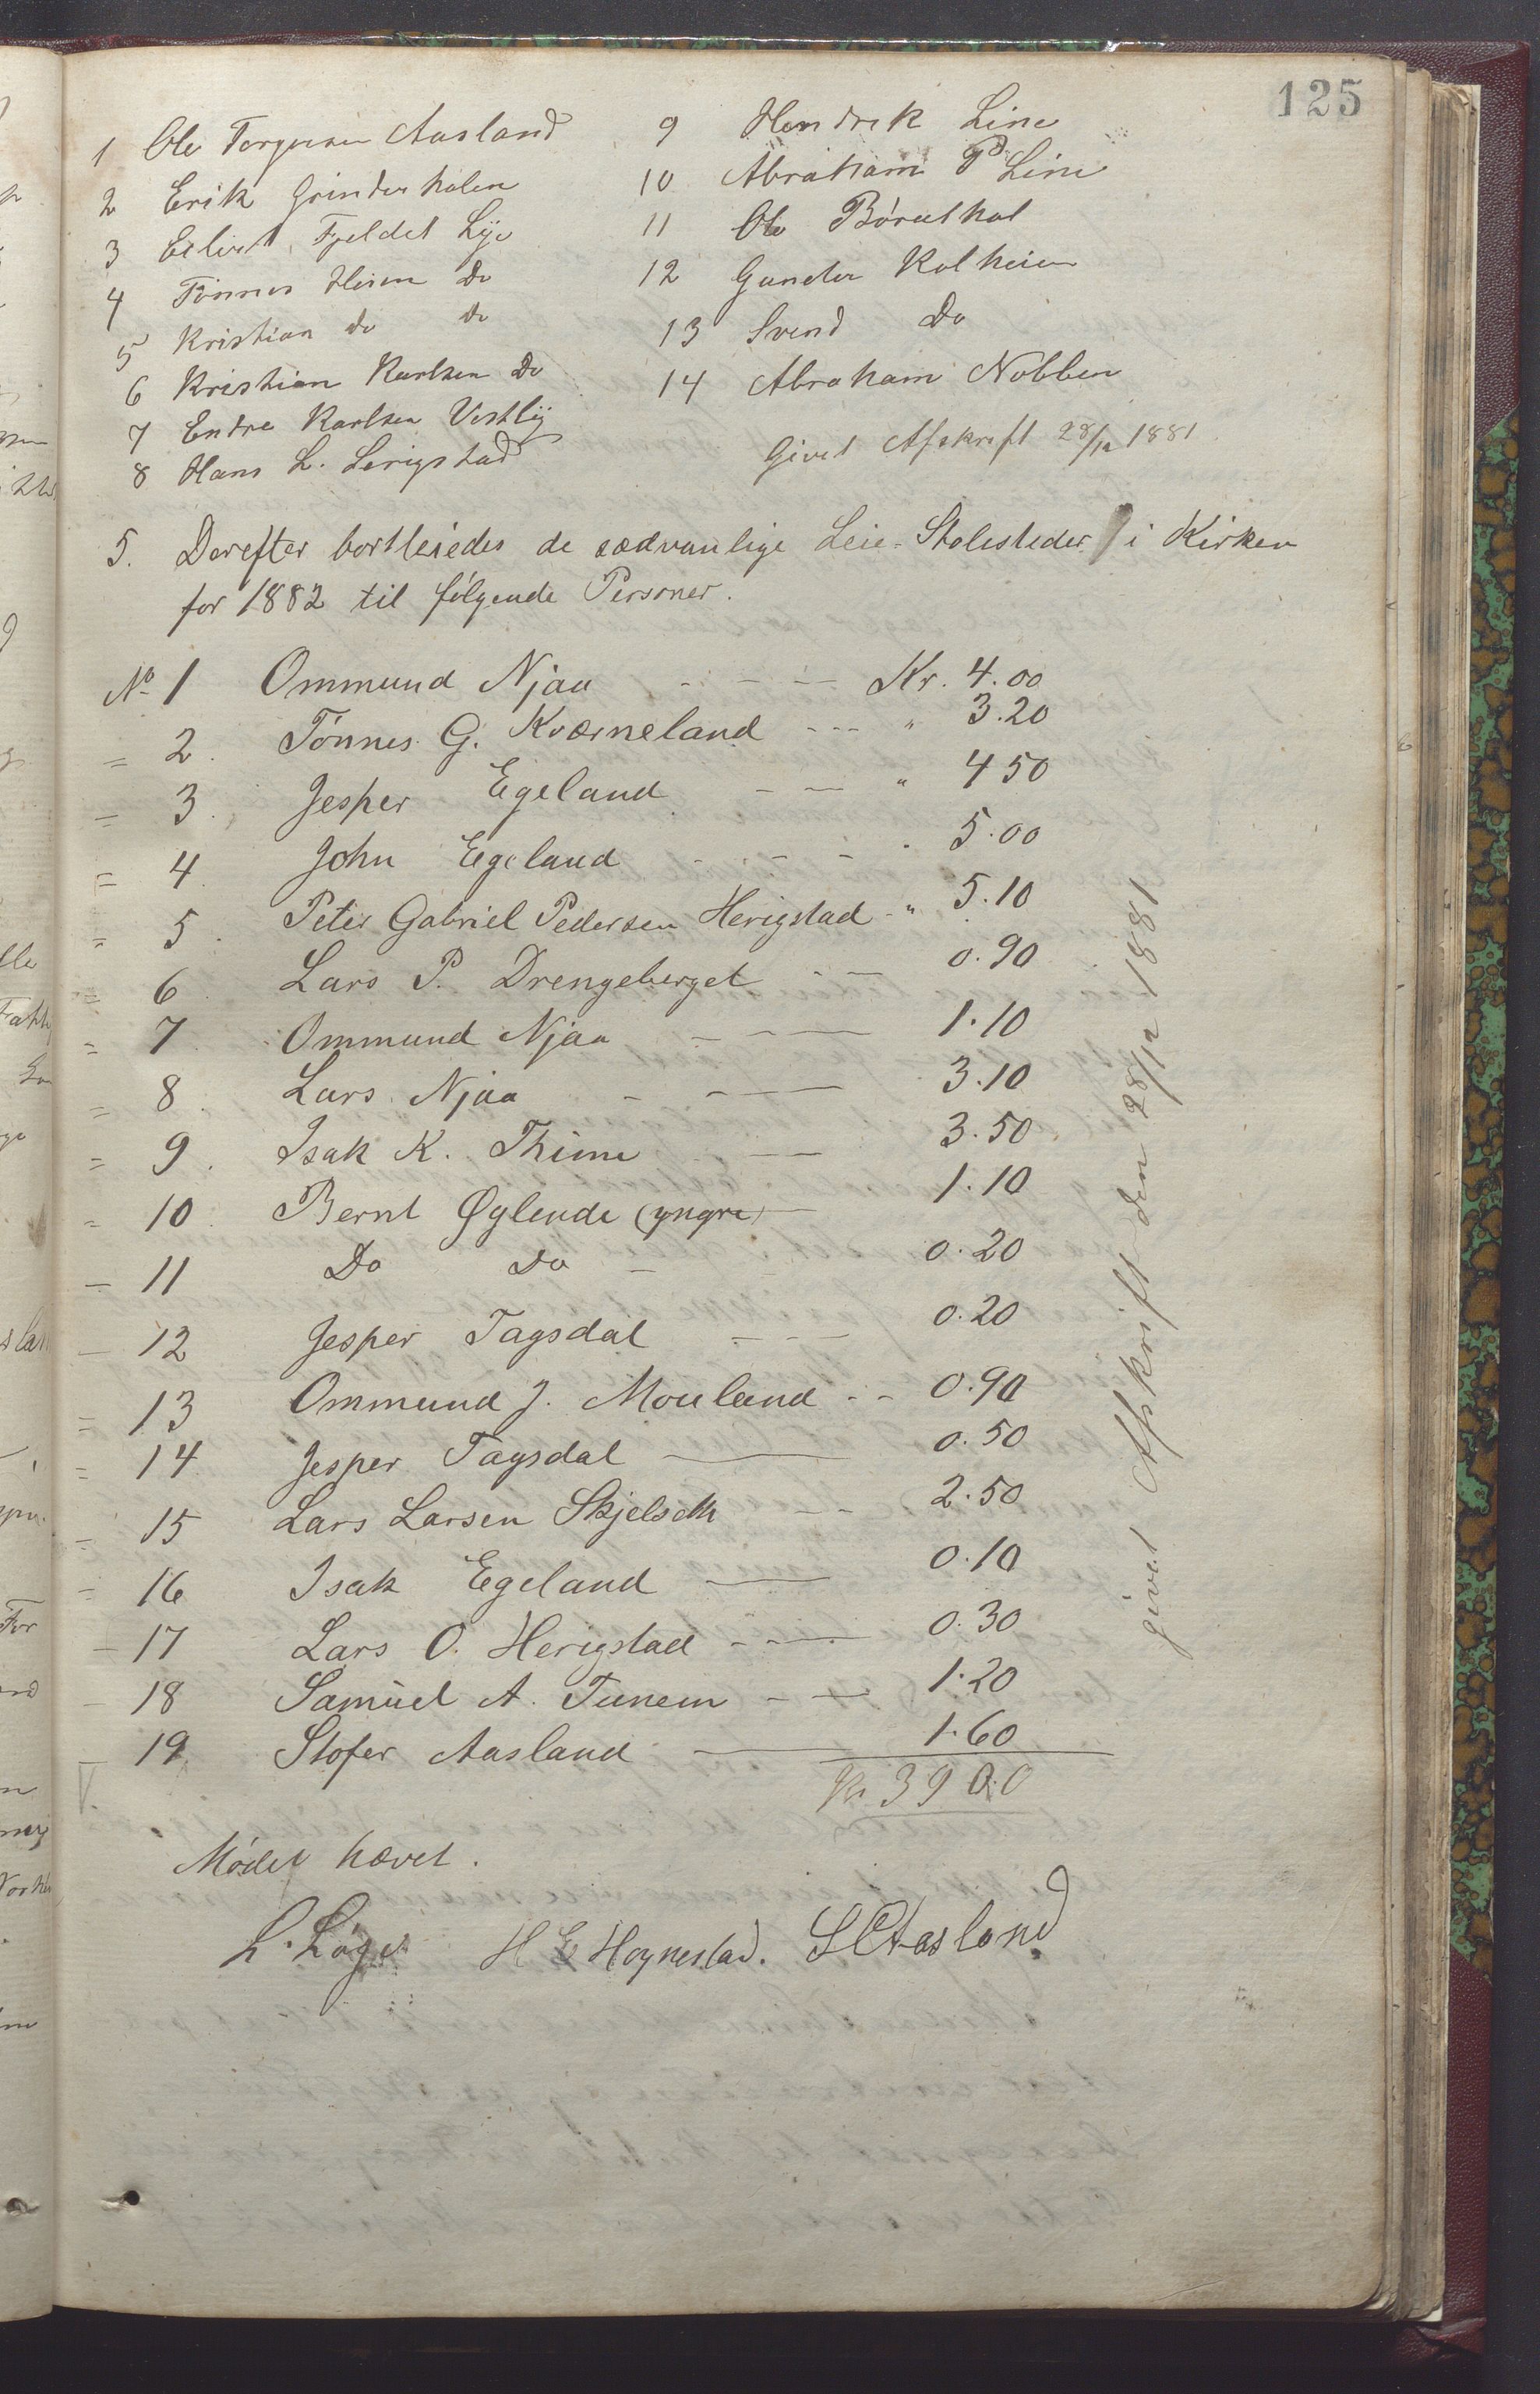 125
1 Ole Torgersen Aasland
2 Erik Grinderholen
3 Eilert Fjeldet Lye
4 Tønnes Heien Do
5 Kristian do do
6 Kristian Karlsen Do
7 Endre Karlsen Vestly
8 Hans L. Lerigstad
9 Hendrik Line
10 Abraham Pd Line
11 Ole Børuthol
12 Gunder Kolheien
13 Svend Do
14 Abraham Nobben
Givet Afskrift 28/12 1881
5. Derefter bortleiedes de sædvanlige Leie-Stolesteder i Kirken
for 1882 til følgende Personer.
No 1 Ommund Njaa - - - Kr. 4.00
= 2. Tønnes G. Kværneland - - - " 3.20
= 3. Jesper Egeland - - " 4 50
= 4. John Egeland - - - " 5.00
= 5. Peter Gabriel Pedersen Herigstad - " 5.10
= 6. Lars P. Drengeberget - - 0.90
= 7. Ommund Njaa - - 1.10
= 8. Lars Njaa - - - 3.10
= 9. Isak K. Thime - - 3.50
= 10. Bernt Øglende (yngre) - 1.10
- 11 Do Do - 0.20
- 12 Jesper Tagsdal - - 0.20
= 13 Ommund J. Mouland - - 0.90
= 14. Jesper Tagsdal - 0.50
= 15 Lars Larsen Skjelseth - - 2.50
= 16 Isak Egeland - 0.10
- 17 Lars O. Herigstad - - - 0.30
- 18 Samuel A. Tunem - - 1.20
- 19. Stofer Aasland - 1.60
Kr 39 00
givet Afskrift den 28/12 1881
Mødet hævet.
L. Lage H E Hognestad. S C Aasland